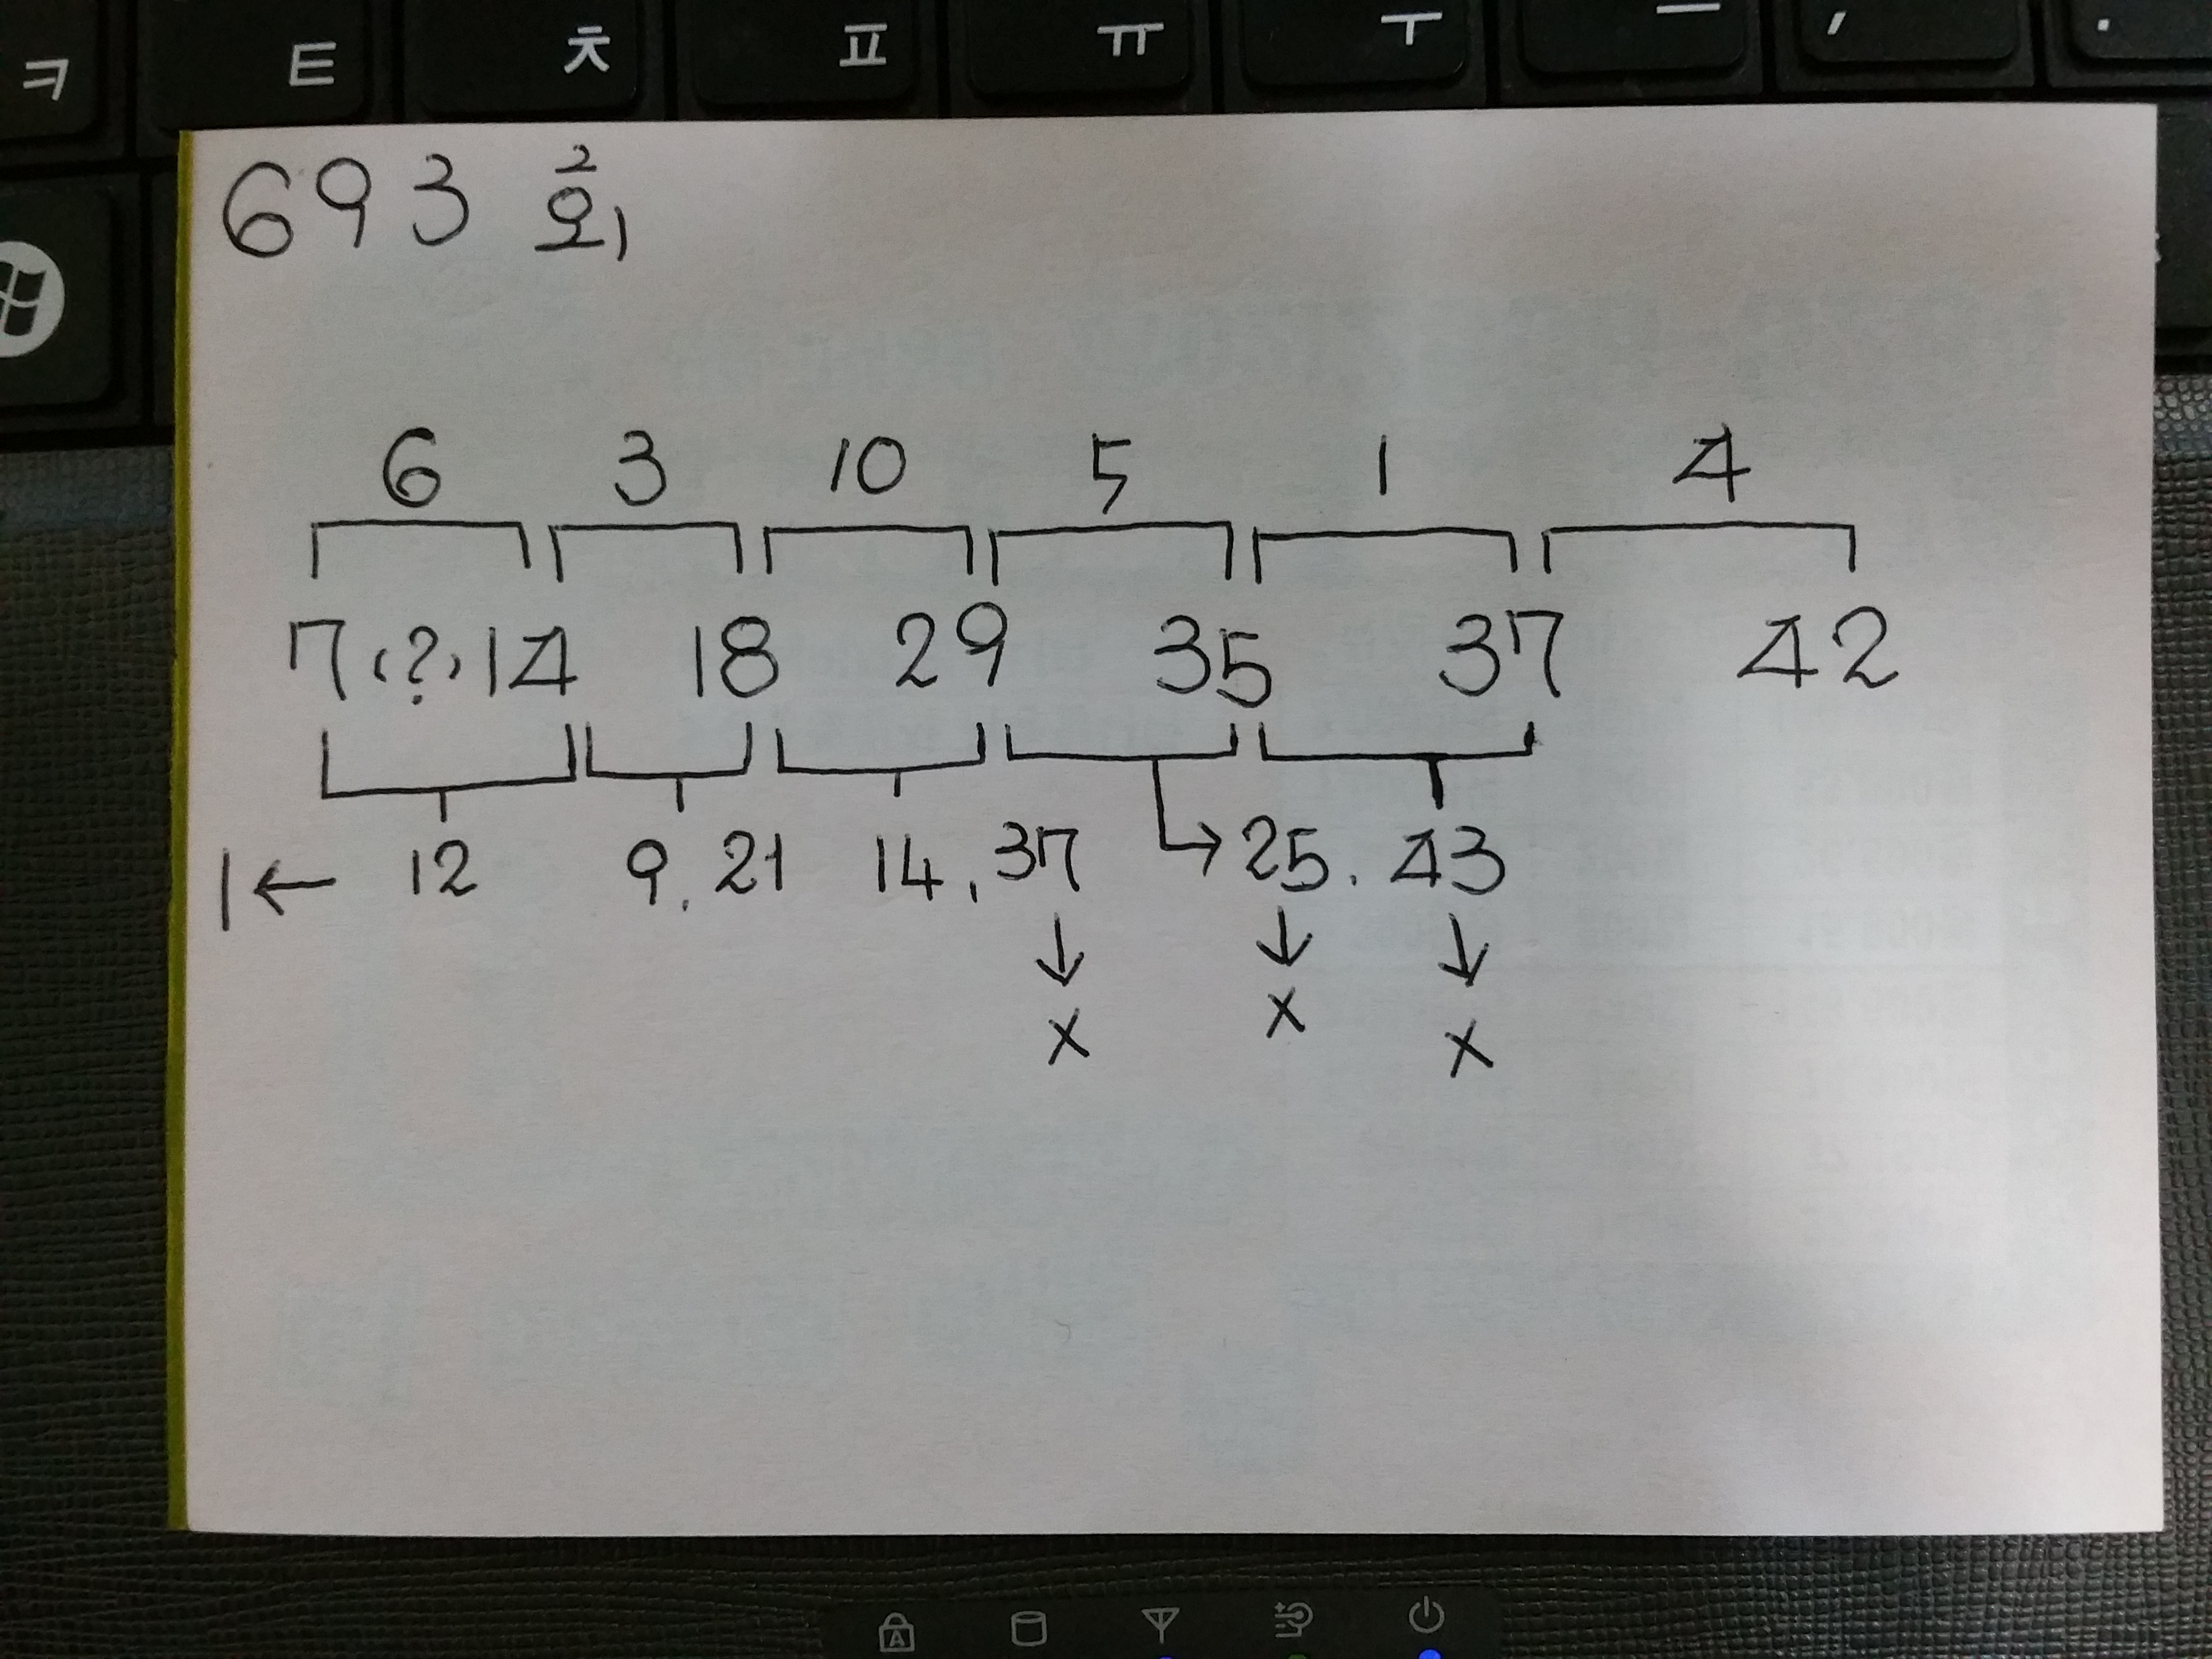 ㅋ ㅌ ㅊ ㅍ ㅠ ㅜ ㅡ , .
693 회
6 3 10 5 1 4
7 (?) 14 18 29 35 37 42
1 ← 12 9. 21 14, 37 → 25. 43
↓ ↓ ↓
x x x
A